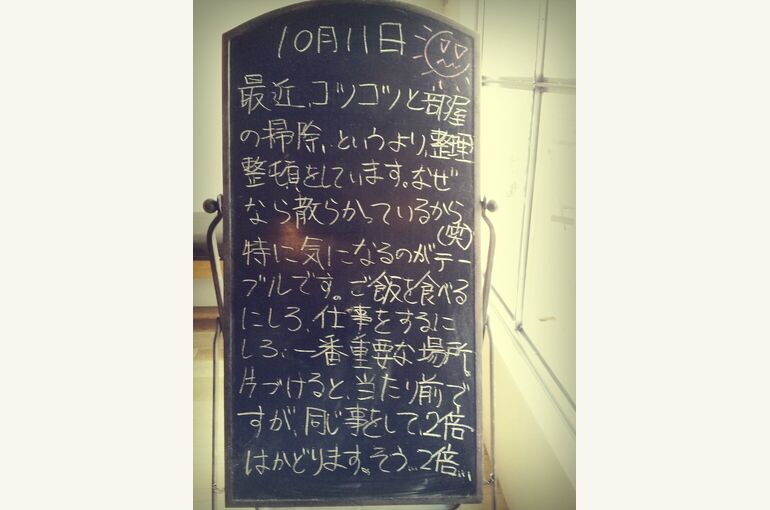 10月11日
最近、コツコツと部屋
の掃除、というより、整理
整頓をしています。なぜ
なら散らかっているから
(笑)
特に気になるのがテー
ブルです。ご飯を食べる
にしろ、仕事をするに
しろ、一番重要な場所。
片づけると、当たり前で
すが、同じ事をして、2倍
はかどります。そう…2倍…